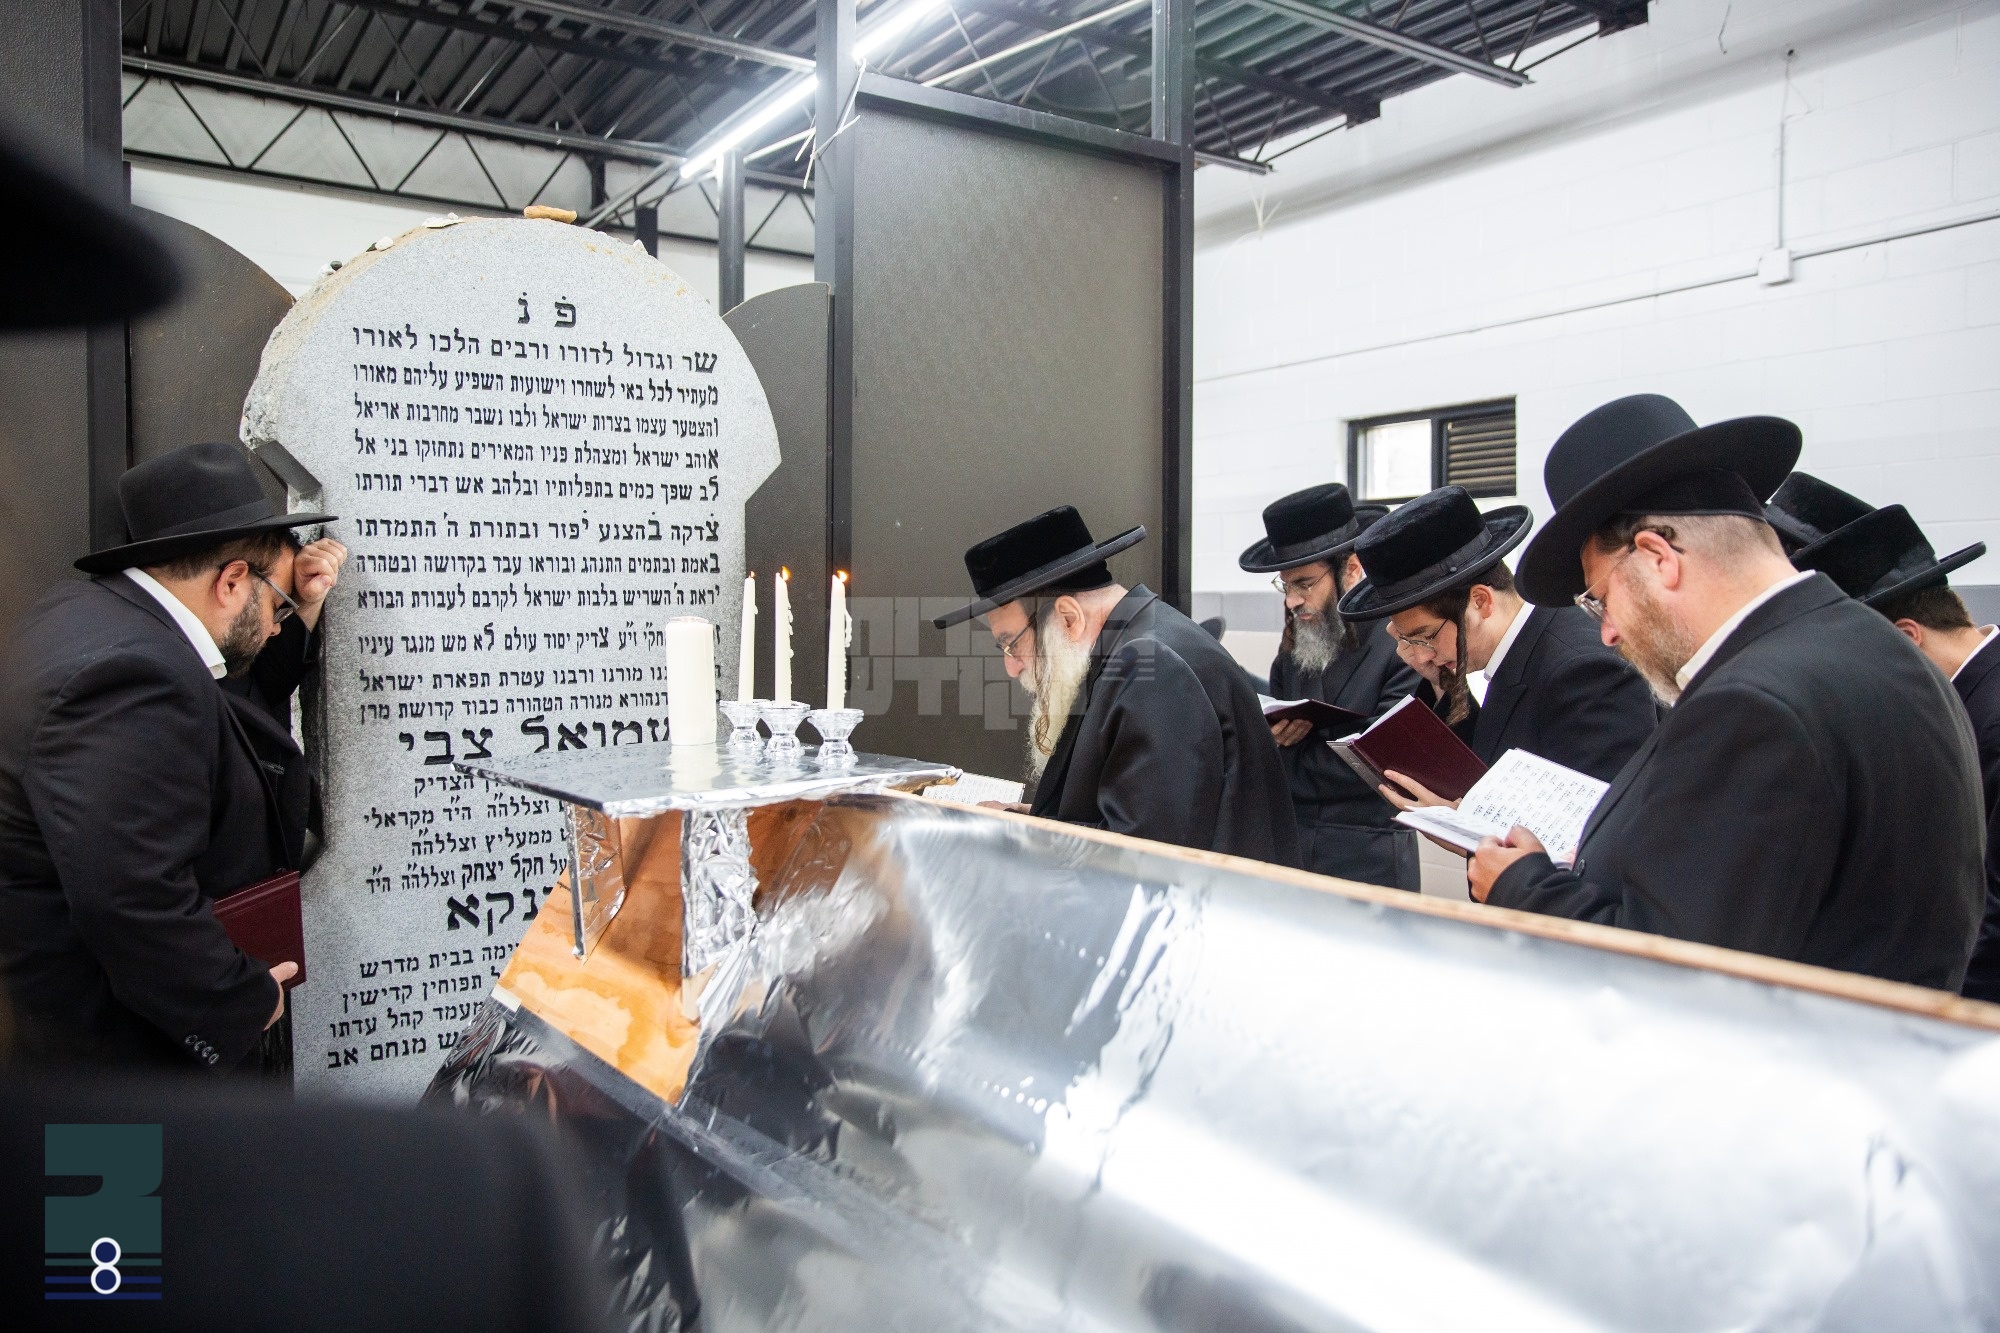 פ נ
שר וגדול לדורו ורבים הלכו לאורו
מעתיר לכל באי לשחרו וישועות השפיע עליהם מאורו
והצטער עצמו בצרות ישראל ולבו נשבר מחרבות אריאל
אוהב ישראל ומצהלת פניו המאירים נתחזקו בני אל
לב שפך כמים בתפלותיו ובלהב אש דברי תורתו
צדקה בהצנע יפזר ובתורת ה' התמדתו
באמת ובתמים התנהג ובוראו עבד בקדושה ובטהרה
יראת ה' השריש בלבות ישראל לקרבם לעבודת הבורא
זי"ע צדיק יסוד עולם לא מש מנגד עיניו
מורנו ורבנו עטרת תפארת ישראל
מנורה הטהורה כבוד קדושת מרן
שמואל צבי
הצדיק
וצללה"ה הי"ד מקראלי
ממעליץ וצללה"ה
על חקל יצחק וצללה"ה הי"ד
בבית מדרש
תפוחין קדישין
מעמד קהל עדתו
מנחם אב
המחרות
קודש
8